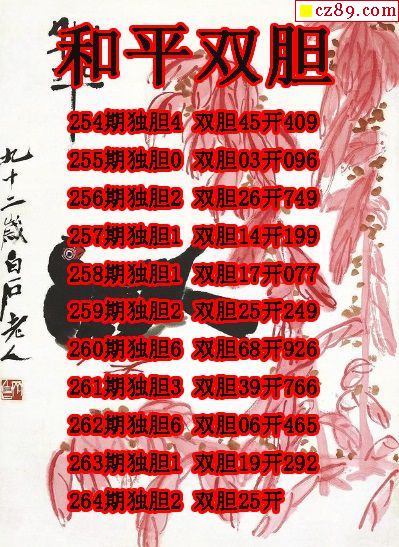 cz89.com
和平双胆
254期独胆4 双胆45开409
255期独胆0 双胆03开096
256期独胆2 双胆26开749
257期独胆1 双胆14开199
258期独胆1 双胆17开077
259期独胆2 双胆25开249
260期独胆6 双胆68开926
261期独胆3 双胆39开766
262期独胆6 双胆06开465
263期独胆1 双胆19开292
264期独胆2 双胆25开
九十二岁白石老人